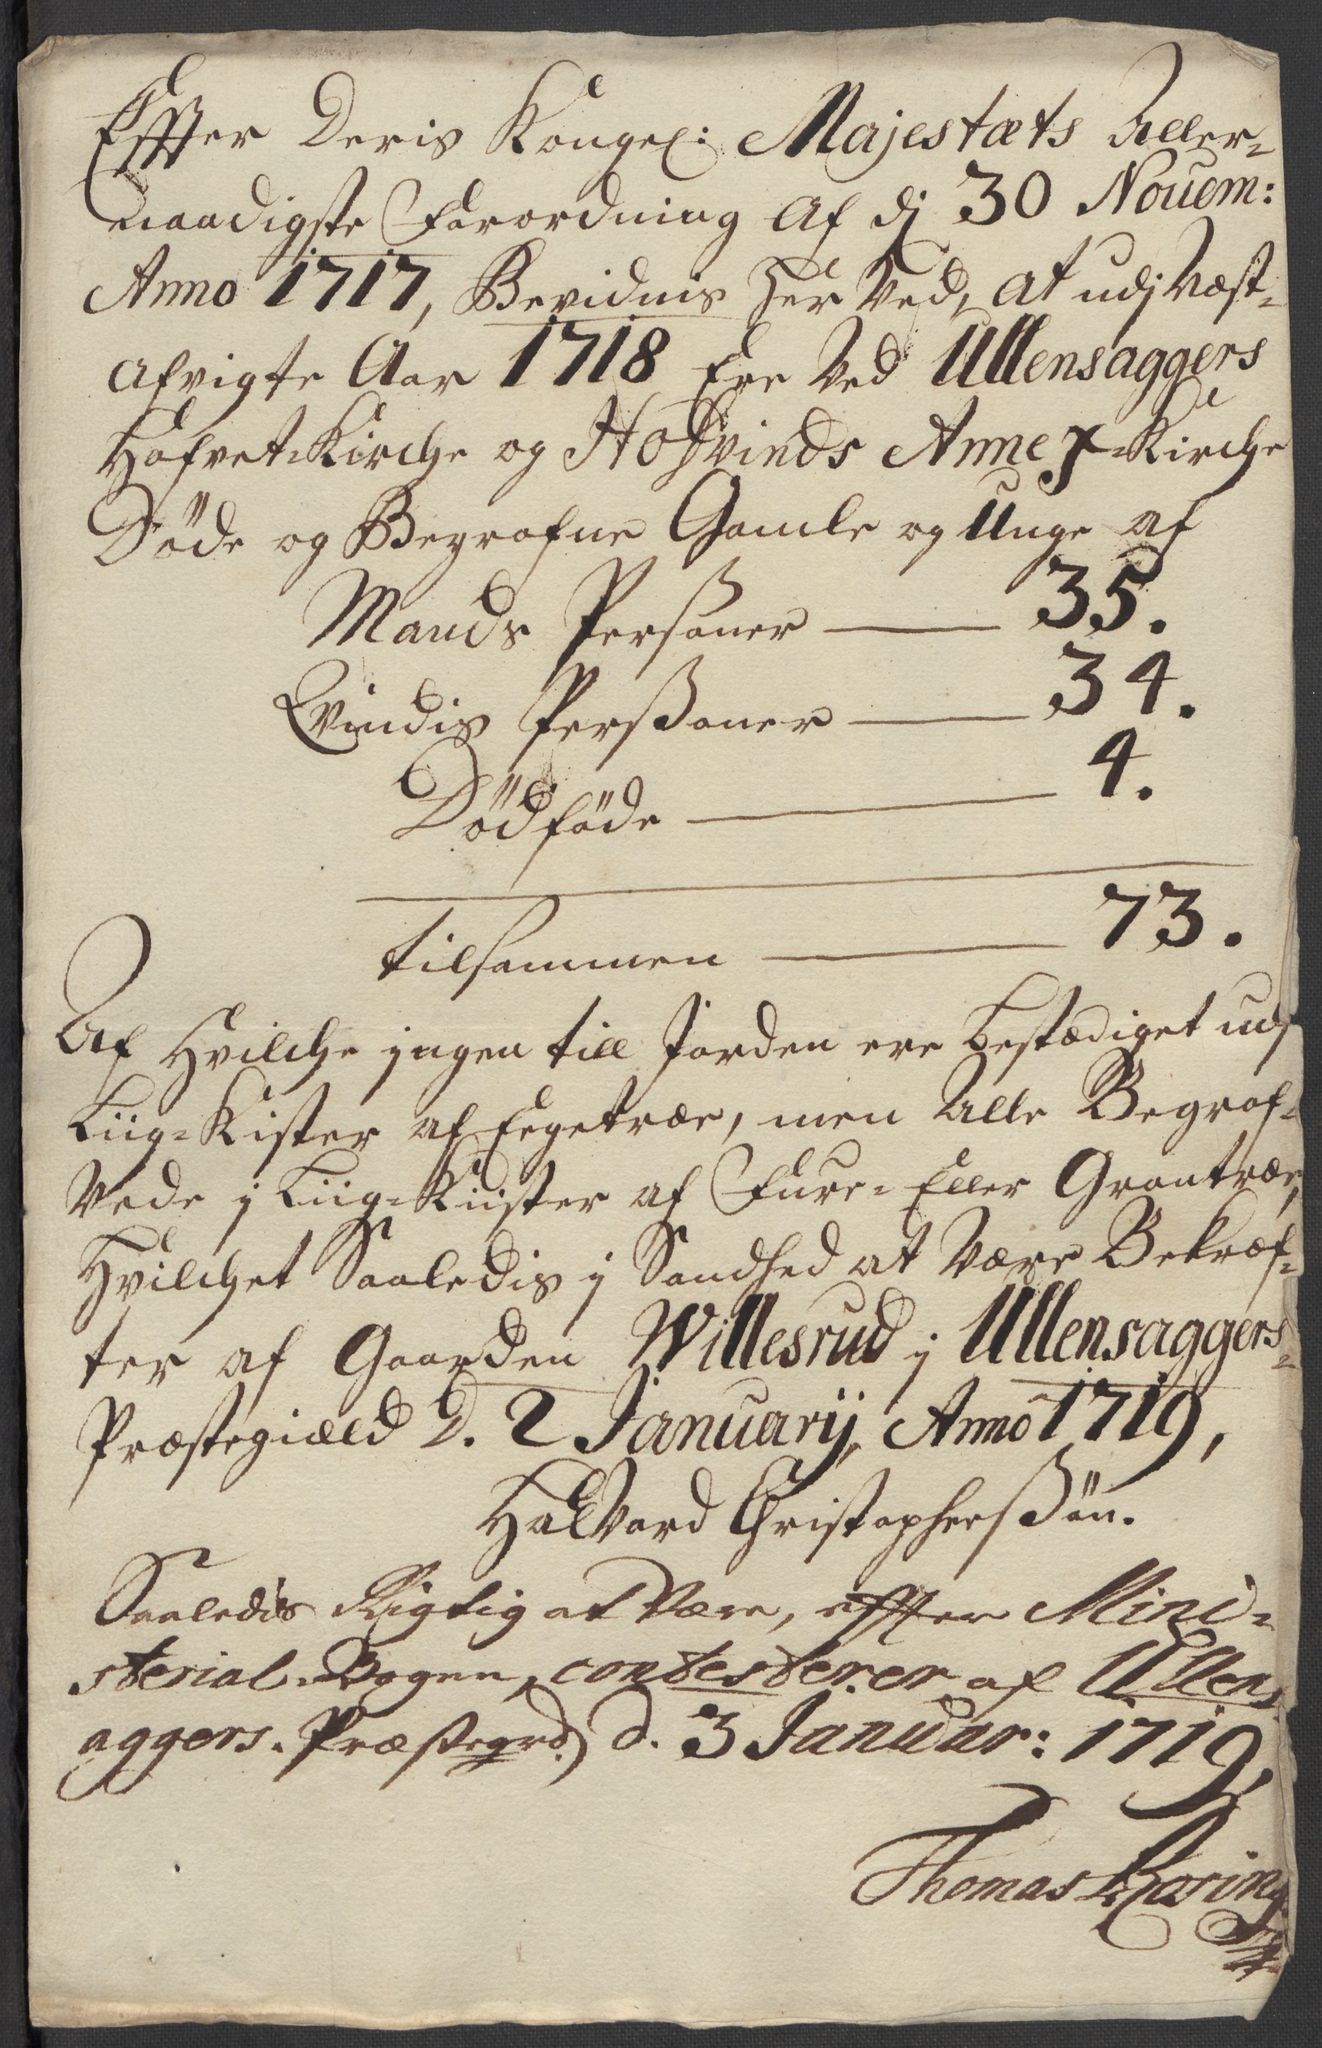 Effter Deris Kongel: Majestæts Aller-
naadigste Forordning af dj 30 Nouem:
Anno 1717, Bevidnis Her Ved, at udj Næst-
afvigte Aar 1718 Ere Ved Ullensaggers
Hofvet-Kirche og Hofvinds Annex-Kirche
Døde og Begrafne Gamle og Unge af
Mands Persåner 35.
Qvindis Perßoner 34.
Dødføde 4.
tilsammen 73.
Af Hvilche jngen till Jorden ere bestædiget udj
Liig-Kister af Eegetræe, men Alle Begraf-
Vede j Liig-Kiister af Fure- Eller Grantræe,
Hvilchet Saaledis j Sandhed at Være Bekræf-
ter af Gaarden Willesrud j Ullensaggers-
Præstegiæld D. 2 Januarij, Anno 1719,
Halvord Christopherßøn.
Saaledis Rigtig at Være, effter Mini-
sterial-Bogen, contesterer af Ullens
aggers-Præstegrd: d. 3 Januar: 1719,
Thomas Rosing